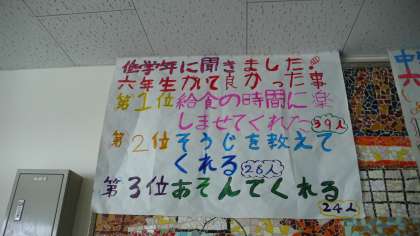 他学年に聞きました!
六年生がいて良かった事
第1位 給食の時間に楽
しませてくれた〜 39人
第2位 そうじを教えて
くれる 26人
第3位 あそんでくれる
24人